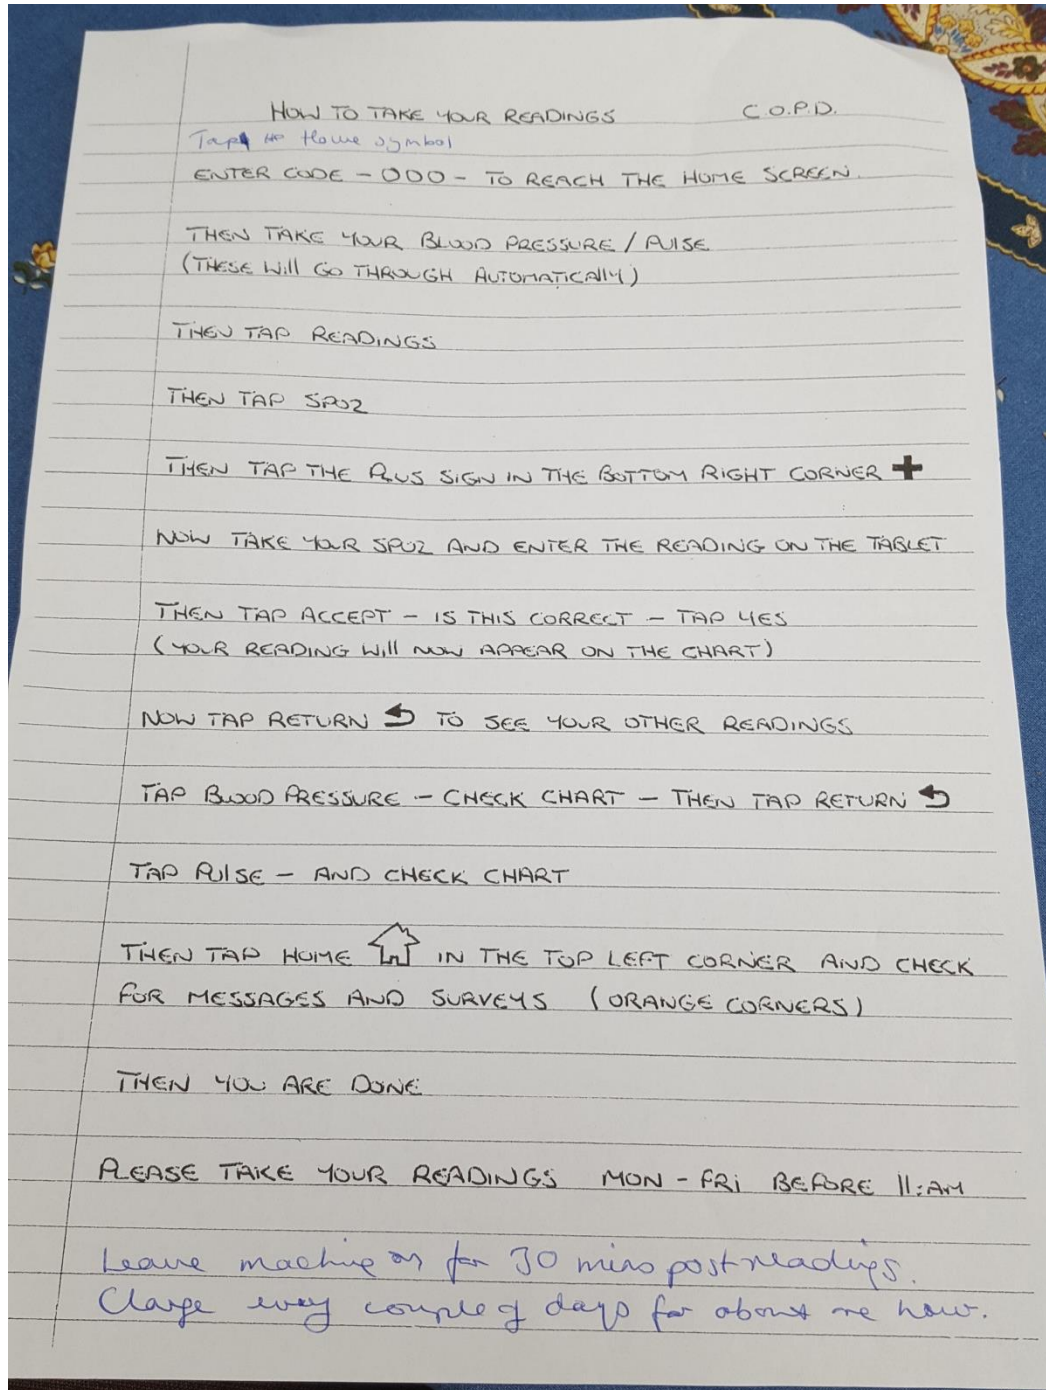 HOW TO TAKE YOUR READINGS C.O.P.D.
Tap Home symbol
ENTER CODE - 000 - TO REACH THE HOME SCREEN.
THEN TAKE YOUR BLOOD PRESSURE / PULSE
(THESE WILL GO THROUGH AUTOMATICALLY)
THEN TAP READINGS
THEN TAP SPO2
THEN TAP THE PLUS SIGN IN THE BOTTOM RIGHT CORNER +
NOW TAKE YOUR SPO2 AND ENTER THE READING ON THE TABLET
THEN TAP ACCEPT - IS THIS CORRECT - TAP YES
(YOUR READING WILL NOW APPEAR ON THE CHART)
NOW TAP RETURN TO SEE YOUR OTHER READINGS
TAP BLOOD PRESSURE - CHECK CHART - THEN TAP RETURN
TAP PULSE - AND CHECK CHART
THEN TAP HOME IN THE TOP LEFT CORNER AND CHECK
FOR MESSAGES AND SURVEYS (ORANGE CORNERS)
THEN YOU ARE DONE
PLEASE TAKE YOUR READINGS MON - FRI BEFORE 11:AM
Leave machine on for 30 mins post readings.
Charge every couple of days for about one hour.